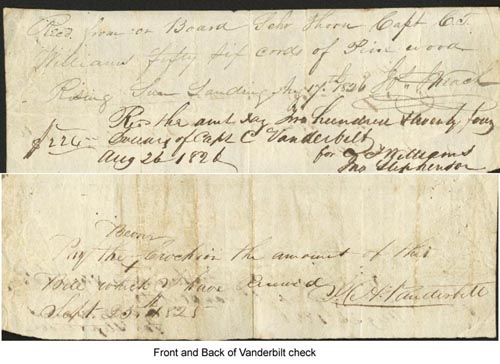 Recd from on Board Schr Thorn Capt C. T.
Williams fifty six cords of Pine wood
Rising Sun Landing 17th 1826
Recd the amt Two hundred & twenty four
$224— of Capt C Vanderbilt
Aug 26 1826 for C T Williams
Jno Stephenson
Bearer
Pay the the amount of this
Bill which I have
Sept 25th 182 Vanderbilt
Front and Back of Vanderbilt check